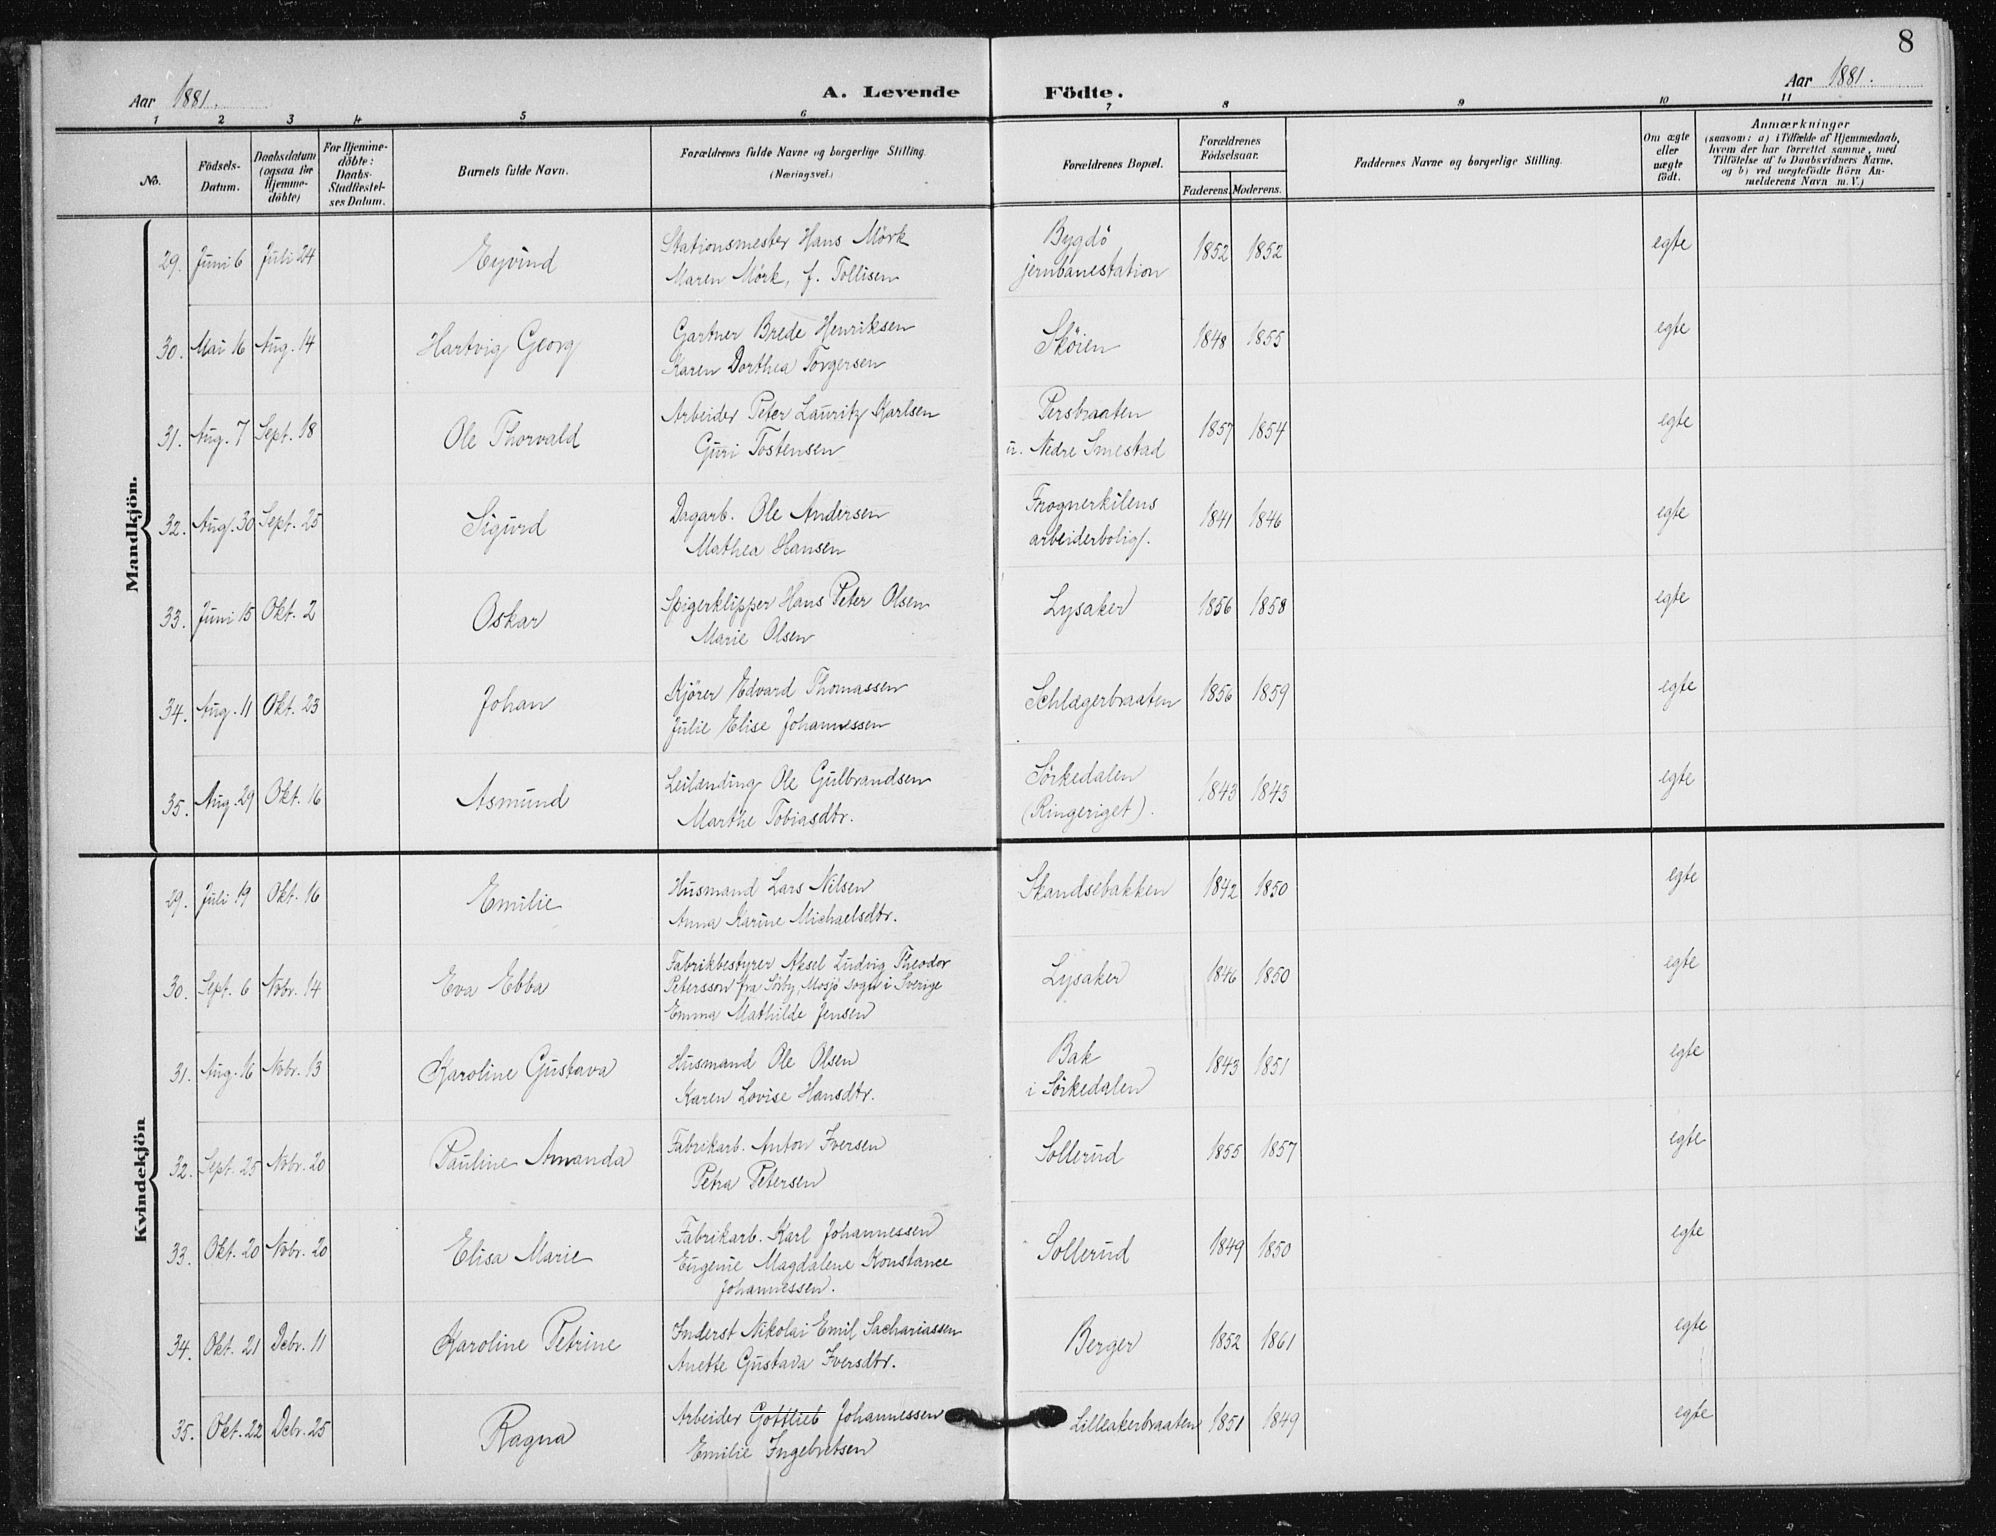 8
Aar 1881. A. Levende Födte. Aar 1881.
1 2 3 4 5 6 7 8 9 10 11
No.
Födsels-Datum.
Daabsdatum (ogsaa for Hjemme-döbte)
For Hjemme-döbte: Daabs-Stadfæstel-ses Datum.
Barnets fulde Navn.
Forældrenes fulde Navne og borgerlige Stilling. (Næringsvei.)
Forældrenes Bopæl.
Forældrenes Födselsaar.
Faderens. Moderens.
Faddernes Navne og borgerlige Stilling.
Om ægte eller uægte födt.
Anmærkninger
(saasom: a) i Tilfælde af Hjemmedaab,
hvem der har forrettet samme, med
Tilföielse af to Daabsvidners Navne,
og b) ved uægtefödte Börn An-
melderens Navn m. V.)
Mandkjön.
29. Juni 6 Juli 24 Eyvind Stationsmester Hans Mörk Bygdö 1852 1852 egte
Maren Mörk, f. Tollisen jernbanestation
30. Mai 16 Aug. 14 Hartvig Georg Gartner Brede Henriksen Sköien 1848 1855 egte
Karen Dorthea Torgersen
31. Aug. 7 Sept. 18 Ole Thorvald Arbeider Peter Lauritz Karlsen Persbraaten 1857 1854 egte
Guri Tostensen u. Nedre Smestad
32. Aug. 30 Sept. 25 Sigurd Dagarb. Ole Andersen Frognerkilens 1841 1846 egte
Mathea Hansen arbeiderbolig.
33. Juni 15 Okt. 2 Oskar Spigerklipper Hans Peter Olsen Lysaker 1856 1858 egte
Marie Olsen
34. Aug. 11 Okt. 23 Johan Kjörer Edvard Thomassen Schlægerbraaten 1856 1859 egte
Julie Elise Johannessen
35. Aug. 29 Okt. 16 Asmund Leilænding Ole Gulbrandsen Sörkedalen 1843 1843 egte
Marthe Tobiasdtr. (Ringeriget).
Kvindekjön
29. Juli 19 Okt. 16 Emilie Husmand Lars Nilsen Skandsebakken 1842 1850 egte
Anna Karine Michaelsdtr.
30. Sept. 6 Nobr. 14 Eva Ebba Fabrikbestyrer Aksel Ludvig Theodor Lysaker 1846 1850 egte
Petersson fra Sörby, Mosjö sogn i Sverige
Emma Mathilde Jensen
31. Aug. 16 Nobr. 13 Karoline Gustava Husmand Ole Olsen Bak 1843 1851 egte
Karen Lovise Hansdtr. i Sörkedalen
32. Sept. 25 Nobr. 20 Pauline Amanda Fabrikarb. Anton Iversen Sollerud 1855 1857 egte
Petra Petersen
33. Okt. 20 Nobr. 20 Elisa Marie Fabrikarb. Karl Johannessen Sollerud 1849 1850 egte
Eugenie Magdalene Konstance
Johannessen.
34. Okt. 21 Debr. 11 Karoline Petrine Inderst Nikolai Emil Sachariassen Berger 1852 1861 egte
Anette Gustava Iversdtr.
35. Okt. 22 Debr. 25 Ragna Arbeider Gottlieb Johannessen Lilleakerbraaten 1851 1849 egte
Emilie Ingebretsen